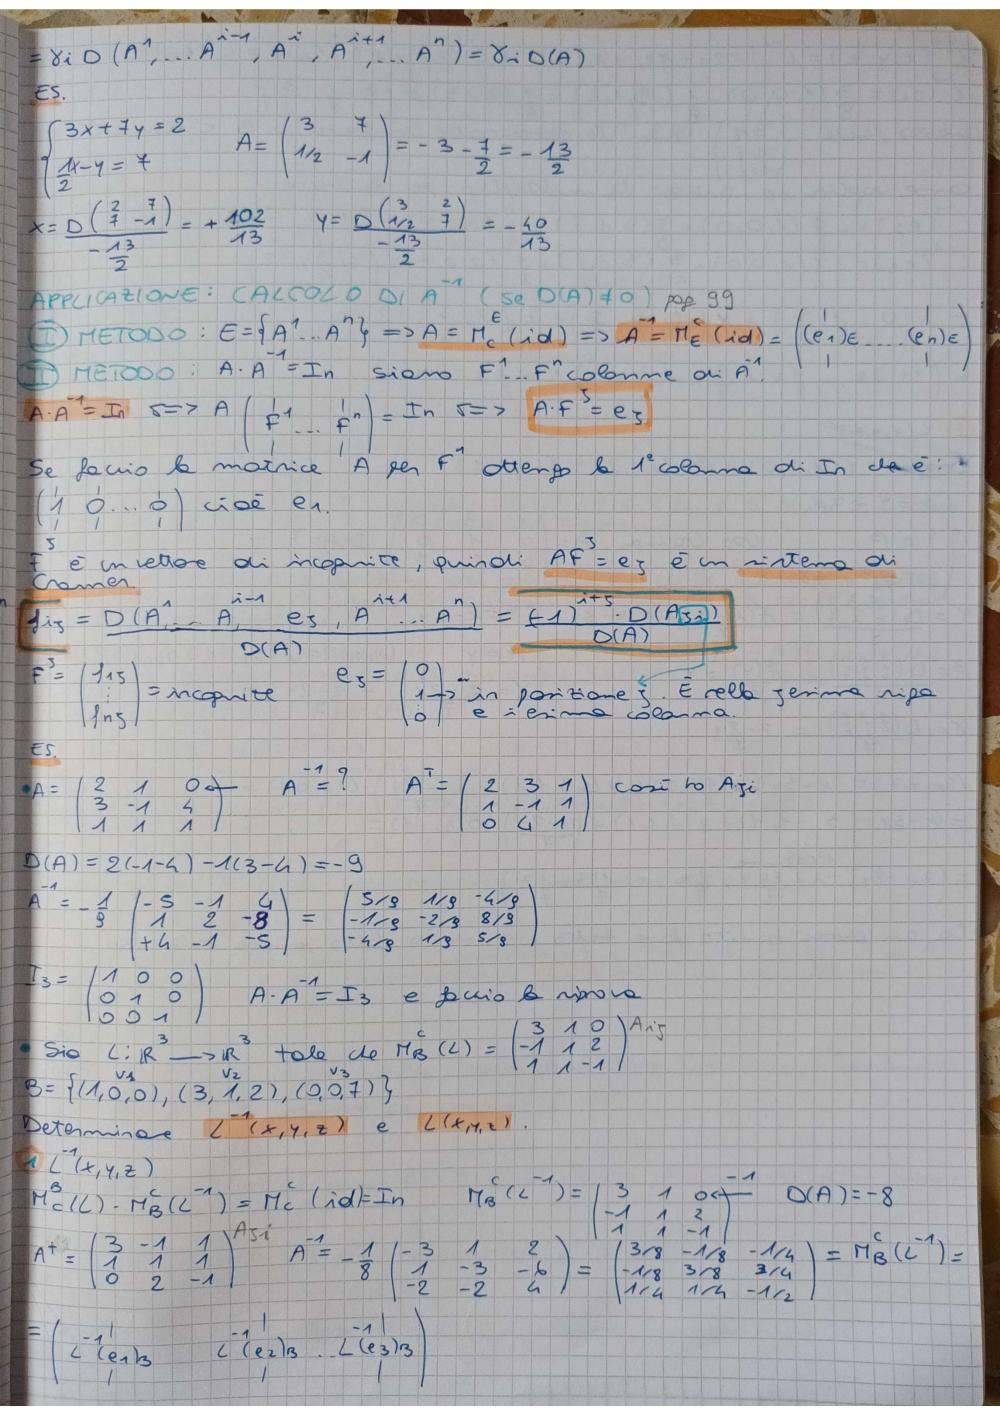 = γi D (A¹, ... Aⁱ⁻¹, Aⁱ, Aⁱ⁺¹, ... Aⁿ) = γi D(A)
ES.
{ 3x+7y=2
1/2x-y=7
A = ( 3 7
1/2 -1 ) = -3 - 7/2 = -13/2
x = D( 2 7
7 -1 ) / -13/2 = + 102/13
y = D( 3 2
1/2 7 ) / -13/2 = - 40/13
APPLICAZIONE: CALCOLO DI A⁻¹ (se D(A)≠0) pag 99
I METODO: E={A¹...Aⁿ} => A = M_C^E (id) => A⁻¹ = M_E^C (id) = ( (e1)E .... (en)E )
II METODO: A·A⁻¹=In siano F¹...Fⁿ colonne di A⁻¹.
A·A⁻¹=In <=> A ( F¹ ... Fⁿ ) = In <=> A·Fʲ = ej
Se faccio la matrice A per F¹ ottengo la 1ª colonna di In che è:
( 1 0 ... 0 ) cioè e1.
Fʲ è un vettore di incognite, quindi AFʲ = ej è un sistema di
Cramer.
fij = D(A¹ ... Aⁱ⁻¹, ej, Aⁱ⁺¹ ... Aⁿ) / D(A) = (-1)ⁱ⁺ʲ · D(Aji) / D(A)
Fʲ = ( f1j
:
fnj ) = incognite
ej = ( 0
1
0 ) -> in posizione j. È nella jesima riga
e iesima colonna.
ES.
• A = ( 2 1 0
3 -1 4
1 1 1 ) A⁻¹ = ?
Aᵀ = ( 2 3 1
1 -1 1
0 4 1 ) così ho Aji
D(A) = 2(-1-4) -1(3-4) = -9
A⁻¹ = - 1/9 ( -5 -1 4
1 2 -8
+4 -1 -5 ) = ( 5/9 1/9 -4/9
-1/9 -2/9 8/9
-4/9 1/9 5/9 )
I3 = ( 1 0 0
0 1 0
0 0 1 ) A·A⁻¹ = I3 e faccio la riprova
• Sia L: ℝ³ -> ℝ³ tale che M_B^C (L) = ( 3 1 0
-1 1 2
1 1 -1 ) Aij
v1 v2 v3
B = {(1,0,0), (3,1,2), (0,0,7)}
Determinare L⁻¹(x,y,z) e L(x,y,z).
1 L⁻¹(x,y,z)
M_C^B (L) · M_B^C (L⁻¹) = M_C^C (id) = In
M_B^C (L⁻¹) = ( 3 1 0
-1 1 2
1 1 -1 )⁻¹ D(A) = -8
Aᵗ = ( 3 -1 1
1 1 1
0 2 -1 ) Aji
A⁻¹ = - 1/8 ( -3 1 2
1 -3 -6
-2 -2 4 ) = ( 3/8 -1/8 -1/4
-1/8 3/8 3/4
1/4 1/4 -1/2 ) = M_B^C (L⁻¹) =
= ( L⁻¹(e1)B L⁻¹(e2)B .. L⁻¹(e3)B )